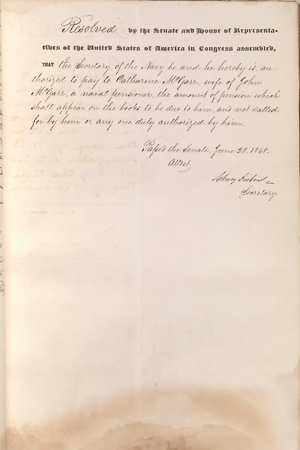 Resolved by the Senate and House of Representa-
tives of the United States of America in Congress assembled,
THAT the Secretary of the Navy be and he hereby is, au
thorized to pay to Catharine McGarr, wife of John
McGarr, a naval pensioner, the amount of pension which
shall appear on the books to be due to him, and not called
for by him or any one duly authorized by him.
Passed the Senate June 28. 1848.
Attest,
Secretary.